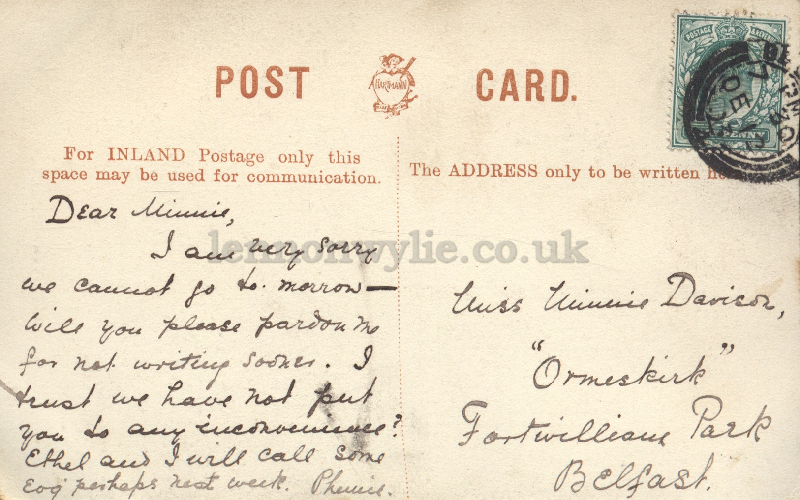 POST CARD.
HARTMANN
For INLAND Postage only this
space may be used for communication.
The ADDRESS only to be written
POSTAGE
PENNY
lennonwylie.co.uk
Dear Minnie,
I am very sorry
we cannot go to-morrow—
Will you please pardon me
for not writing sooner. I
trust we have not put
you to any inconvenience?
Ethel and I will call some
Evg perhaps next week. Phemie.
Miss Minnie Davison,
"Ormeskirk"
Fortwilliam Park
Belfast.